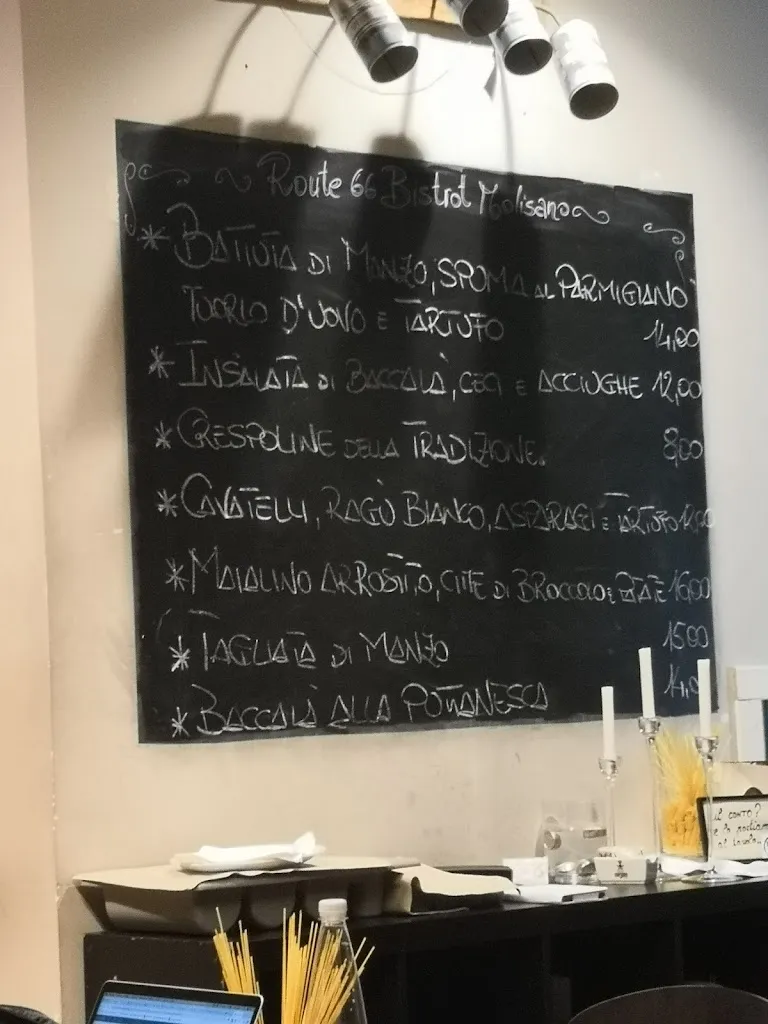 Route 66 Bistrot Molisano
* BATTUTA DI MANZO, SPUMA AL PARMIGIANO
TUORLO D'UOVO E TARTUFO 14,00
* INSALATA DI BACCALÀ, CECI E ACCIUGHE 12,00
* CRESPOLINE DELLA TRADIZIONE. 8,00
* CAVATELLI, RAGÙ BIANCO, ASPARAGI E TARTUFO
* MAIALINO ARROSTITO, CIME DI BROCCOLO E PATATE 16,00
* TAGLIATA DI MANZO 15,00
* BACCALÀ ALLA POTTANESCA
il conto?
e lo portiamo
al tavolo..